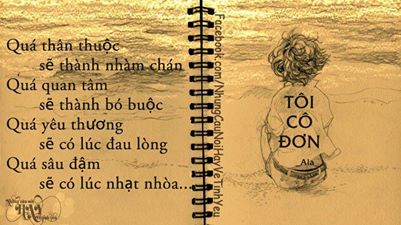 Quá thân thuộc
sẽ thành nhàm chán
Quá quan tâm
sẽ thành bó buộc
Quá yêu thương
sẽ có lúc đau lòng
Quá sâu đậm
sẽ có lúc nhạt nhòa...
Facebook.com/NhungCauNoiHayVeTinhYeu
TÔI
CÔ
ĐƠN
Ala